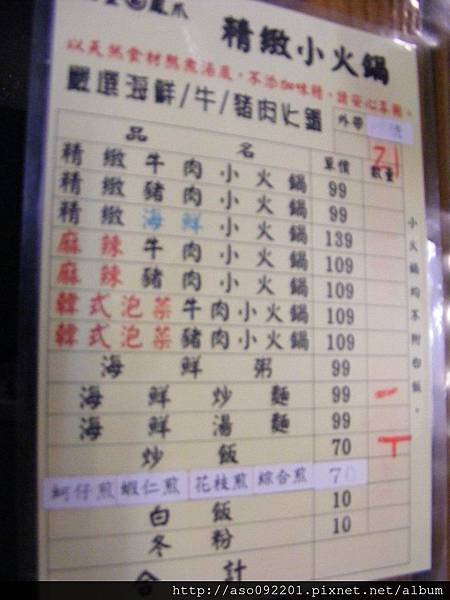 鳳爪
精緻小火鍋
以天然食材熬煮湯底，不添加味精，請安心享用。
嚴選海鮮/牛/豬肉火鍋 外帶
品名 單價 數量
精緻牛肉小火鍋 99
精緻豬肉小火鍋 99
精緻海鮮小火鍋 139
麻辣牛肉小火鍋 109
麻辣豬肉小火鍋 109
韓式泡菜牛肉小火鍋 109
韓式泡菜豬肉小火鍋 109
海鮮粥 99
海鮮炒麵 99
海鮮湯麵 99
炒飯 70
蚵仔煎 蝦仁煎 花枝煎 綜合煎 70
白飯 10
冬粉 10
合計
小火鍋均不附白飯。
http://aso092201.pixnet.net/album